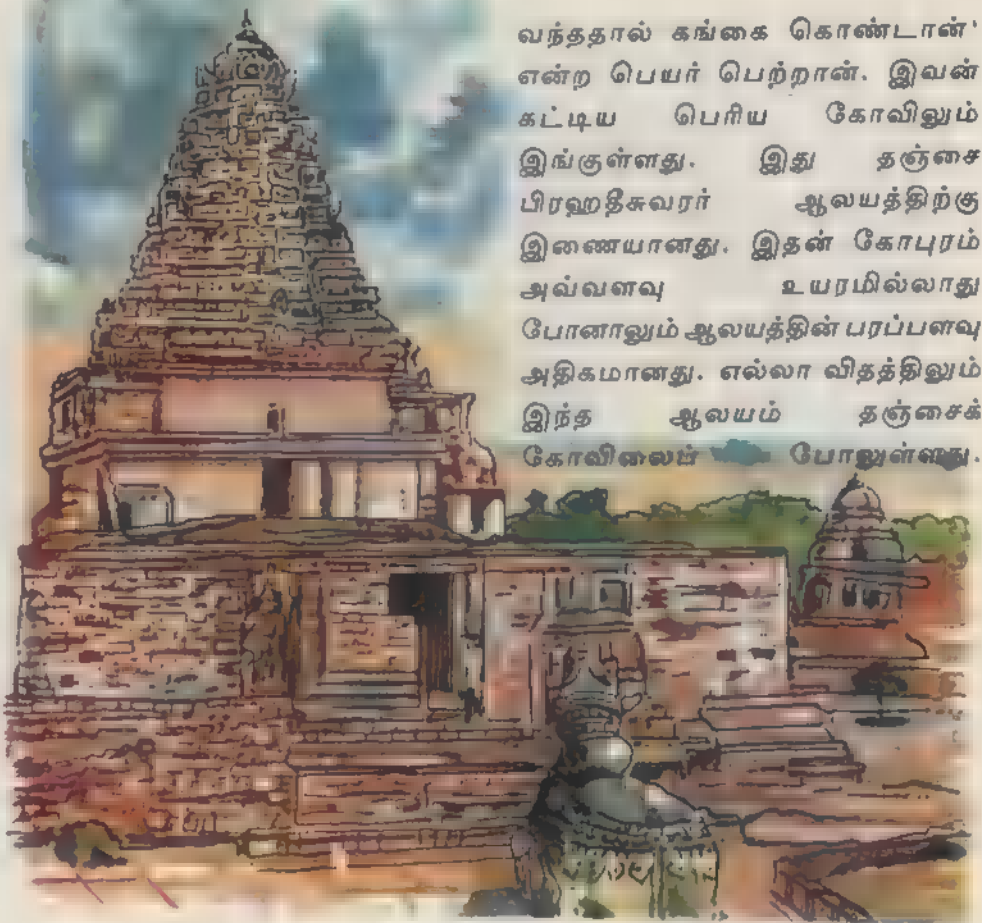 வந்ததால் கங்கை கொண்டான்'
என்ற பெயர் பெற்றான். இவன்
கட்டிய பெரிய கோவிலும்
இங்குள்ளது. இது தஞ்சை
பிரஹதீசுவரர் ஆலயத்திற்கு
இணையானது. இதன் கோபுரம்
அவ்வளவு உயரமில்லாது
போனாலும் ஆலயத்தின் பரப்பளவு
அதிகமானது. எல்லா விதத்திலும்
இந்த ஆலயம் தஞ்சைக்
கோவிலைப் போலுள்ளது.